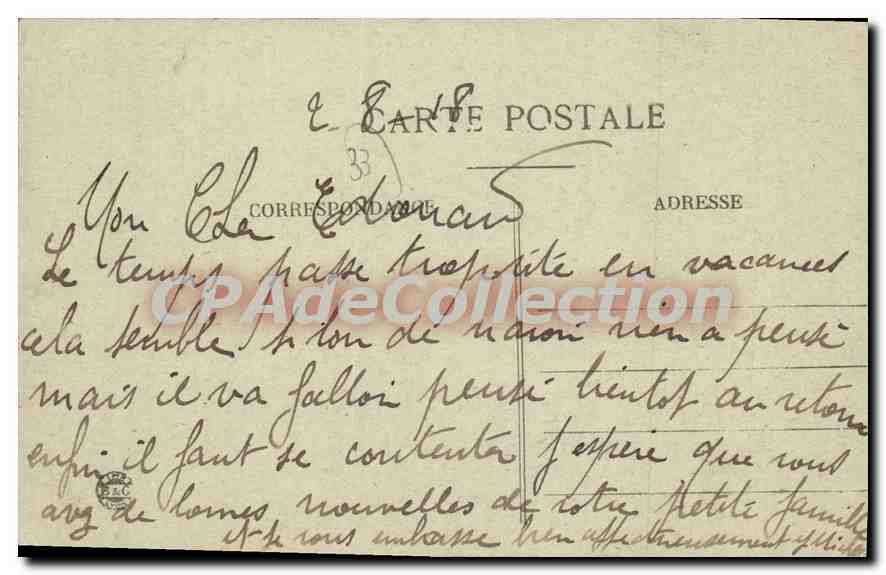 2-8-18
CARTE POSTALE
33
Mon Cher Edouard
CORRESPONDANCE
ADRESSE
Le temps passe trop vite en vacances
CPAdeCollection.com
cela semble si bon de n'avoir rien a pensé
mais il va falloir pensé bientot au retour
enfin il faut se contenter j'espère que vous
avez de bonnes nouvelles de votre petite famille
B&G
et je vous embrasse bien affectueusement